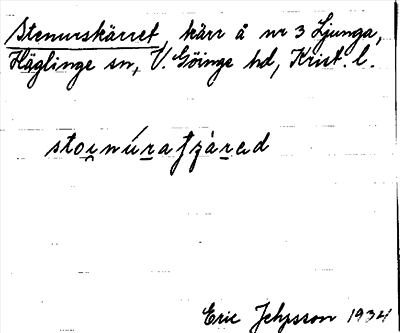 Stenurskärret, kärr å nr 3 Ljunga,
Häglinge sn, V. Göinge hd, Krist. l.
Eric Jehpsson 1934